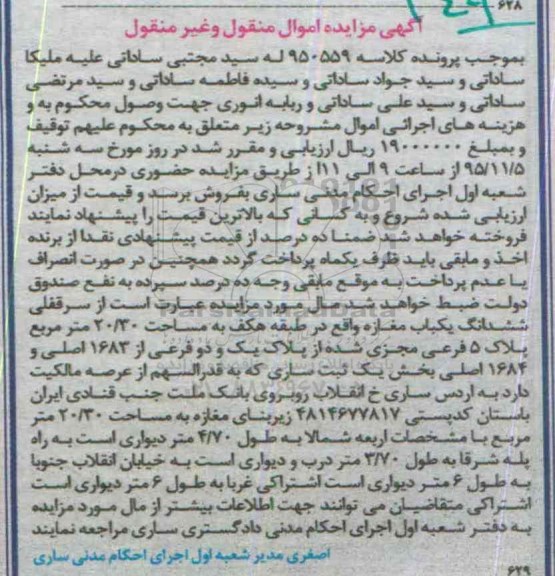 ۶۲۸
آگهی مزایده اموال منقول وغیر منقول
بموجب پرونده کلاسه ۹۵۰۵۵۹ له سید مجتبی ساداتی علیه ملیکا
ساداتی و سید جواد ساداتی و سیده فاطمه ساداتی و سید مرتضی
ساداتی و سید علی ساداتی و ربابه انوری جهت وصول محکوم به و
هزینه های اجرائی اموال مشروحه زیر متعلق به محکوم علیهم توقیف
و بمبلغ ۱۹۰۰۰۰۰۰ ریال ارزیابی و مقرر شد در روز مورخ سه شنبه
۹۵/۱۱/۵ از ساعت ۹ الی ۱۱از طریق مزایده حضوری درمحل دفتر
شعبه اول اجرای احکام مدنی ساری بفروش برسد و قیمت از میزان
ارزیابی شده شروع و به کسانی که بالاترین قیمت را پیشنهاد نمایند
فروخته خواهد شد ضمنا ده درصد از قیمت پیشنهادی نقدا از برنده
اخذ و مابقی باید ظرف یکماه پرداخت گردد همچنین در صورت انصراف
یا عدم پرداخت به موقع مابقی وجه ده درصد سپرده به نفع صندوق
دولت ضبط خواهد شد.مال مورد مزایده عبارت است از سرقفلی
ششدانگ یکباب مغازه واقع در طبقه هکف به مساحت ۲۰/۳۰ متر مربع
پلاک ۵ فرعی مجزی شده از پلاک یک و دو فرعی از ۱۶۸۳ اصلی و
۱۶۸۴ اصلی بخش یک ثبت ساری که به قدرالسهم از عرصه مالکیت
دارد به اردس ساری خ انقلاب روبروی بانک ملت جنب قنادی ایران
باستان کدپستی ۴۸۱۴۶۷۷۸۱۷ زیربنای مغازه به مساحت ۲۰/۳۰ متر
مربع با مشخصات اربعه شمالا به طول ۴/۷۰ متر دیواری است به راه
پله شرقا به طول ۳/۷۰ متر درب و دیواری است به خیابان انقلاب جنوبا
به طول ۶ متر دیواری است اشتراکی غربا به طول ۶ متر دیواری است
اشتراکی متقاضیان می توانند جهت اطلاعات بیشتر از مال مورد مزایده
به دفتر شعبه اول اجرای احکام مدنی دادگستری ساری مراجعه نمایند
اصغری مدیر شعبه اول اجرای احکام مدنی ساری
۶۲۹